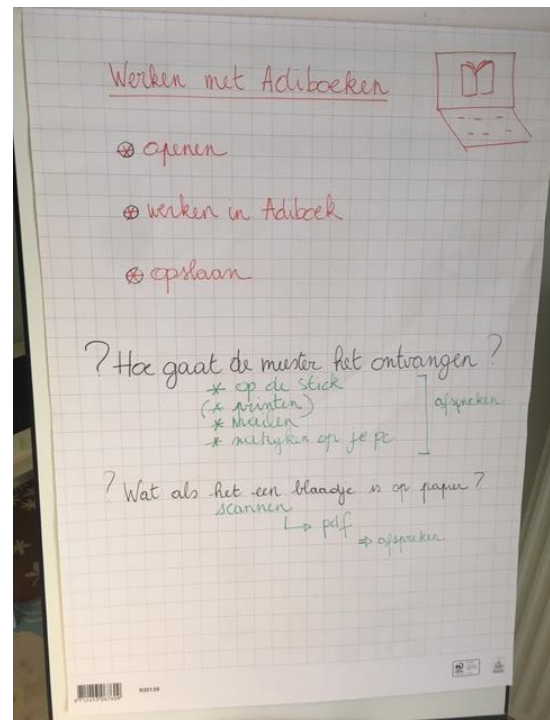 Werken met Adiboeken
openen
werken in Adiboek
opslaan
? Hoe gaat de meester het ontvangen ?
* op de stick
(* printen)
* mailen
* meekijken op je pc
afspreken
? Wat als het een blaadje is op papier ?
scannen
↳ pdf
⇒ afspreken
920129